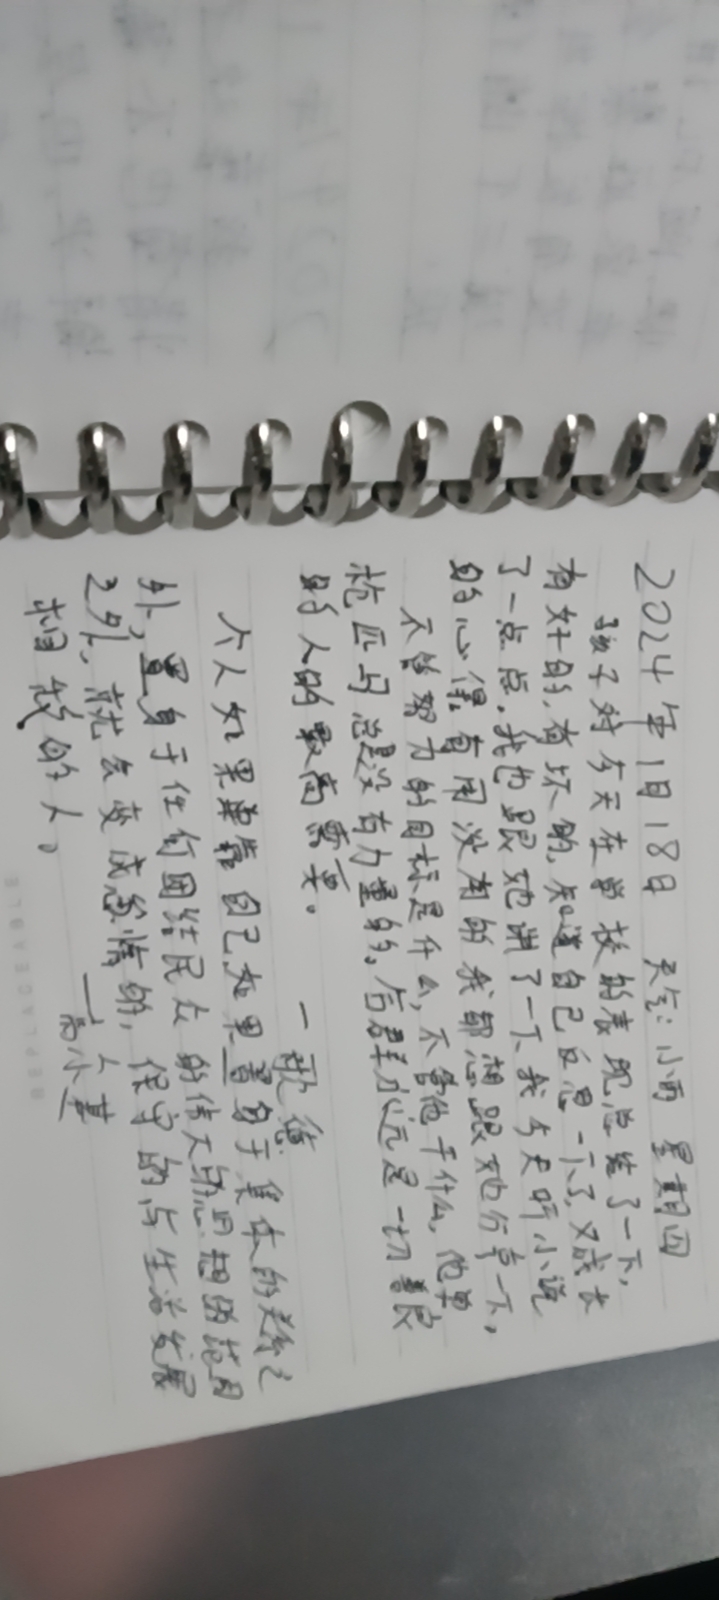 2024年1月18日 天气:小雨 星期四
孩子对今天在学校的表现总结了一下,
有好的,有坏的,知道自己反思一下了,又成长
了一点点,我也跟她讲了一下我今天听小说
的心得,有用没用的我都想跟她分享一下,
不管努力的目标是什么,不管他干什么,他单
枪匹马总是没有力量的,合群永远是一切善良
的人的最高需要。
一歌德
个人如果单靠自己,如果置身于集体的关系之
外,置身于任何团结民众的伟大的思想的范围
之外,就会变成怠惰的,保守的,与生活发展
相 的人。
REPLACEABLE